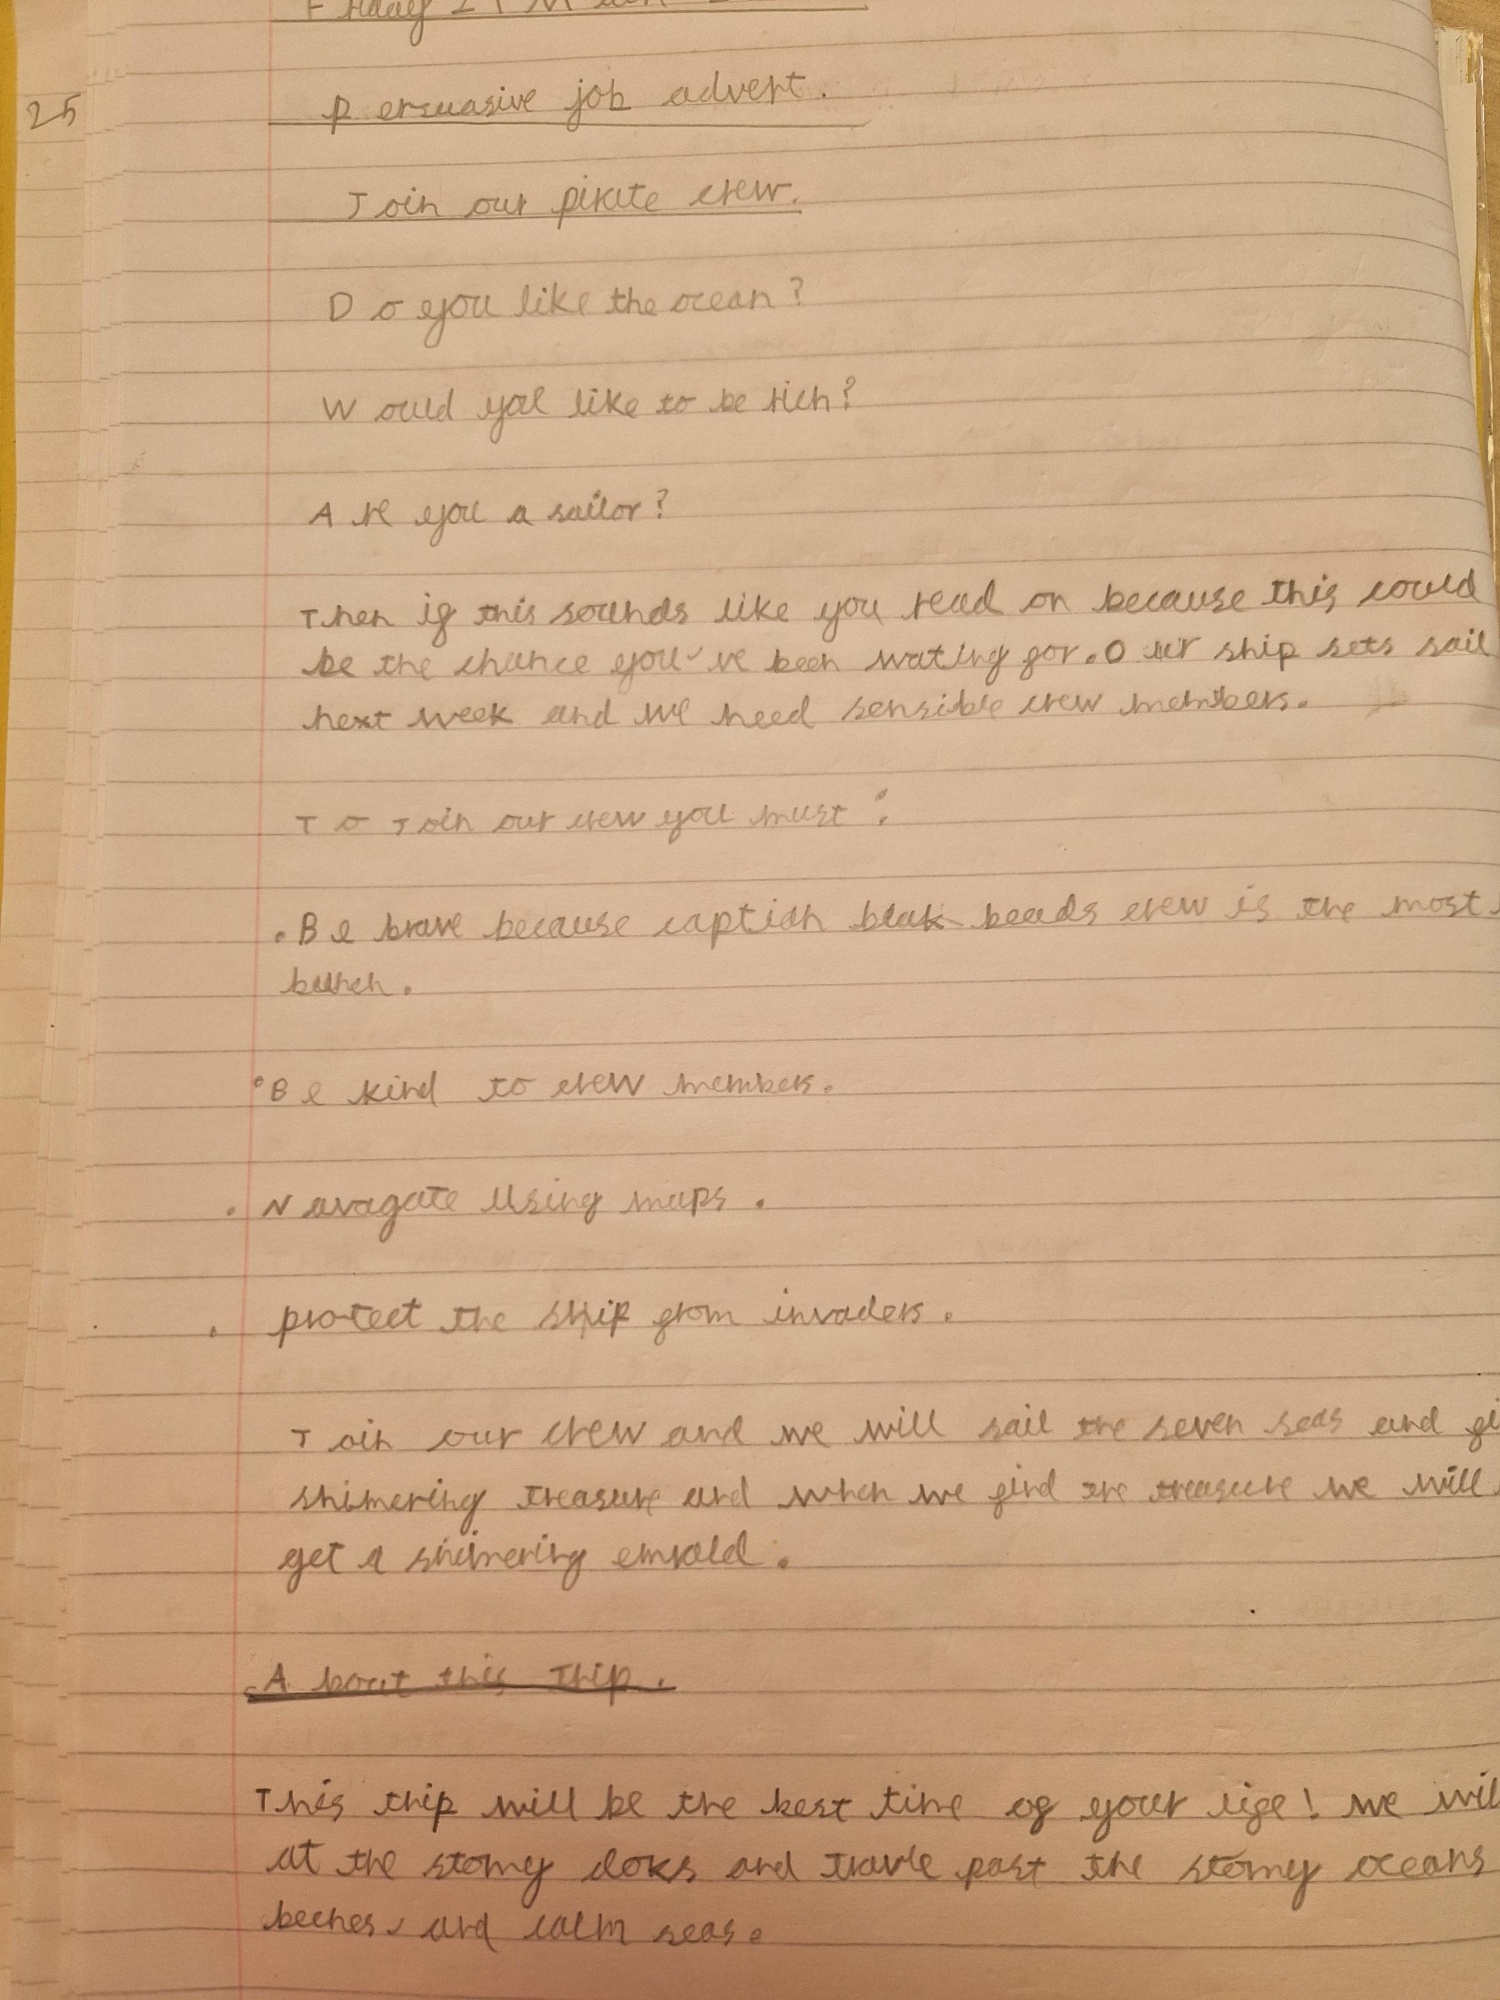 25
Persuasive job advert.
Join our pirate crew.
Do you like the ocean?
Would you like to be rich?
Are you a sailor?
Then if this sounds like you read on because this could
be the chance you've been wating for. Our ship sets sail
next week and we need sensible crew members.
To Join our crew you must :
. Be brave because caption beads crew is the most
bunch.
. Be kind to crew members.
. Navagate Using maps .
. protect the ship from invaders.
Join our crew and we will sail the seven seas and
shimering treasure and when we find the treasure we will
get a shimering emrald.
About this Trip.
This trip will be the best time of your life! We
at the stomy doks and travle past the stomy oceans
beches, and calm seas.